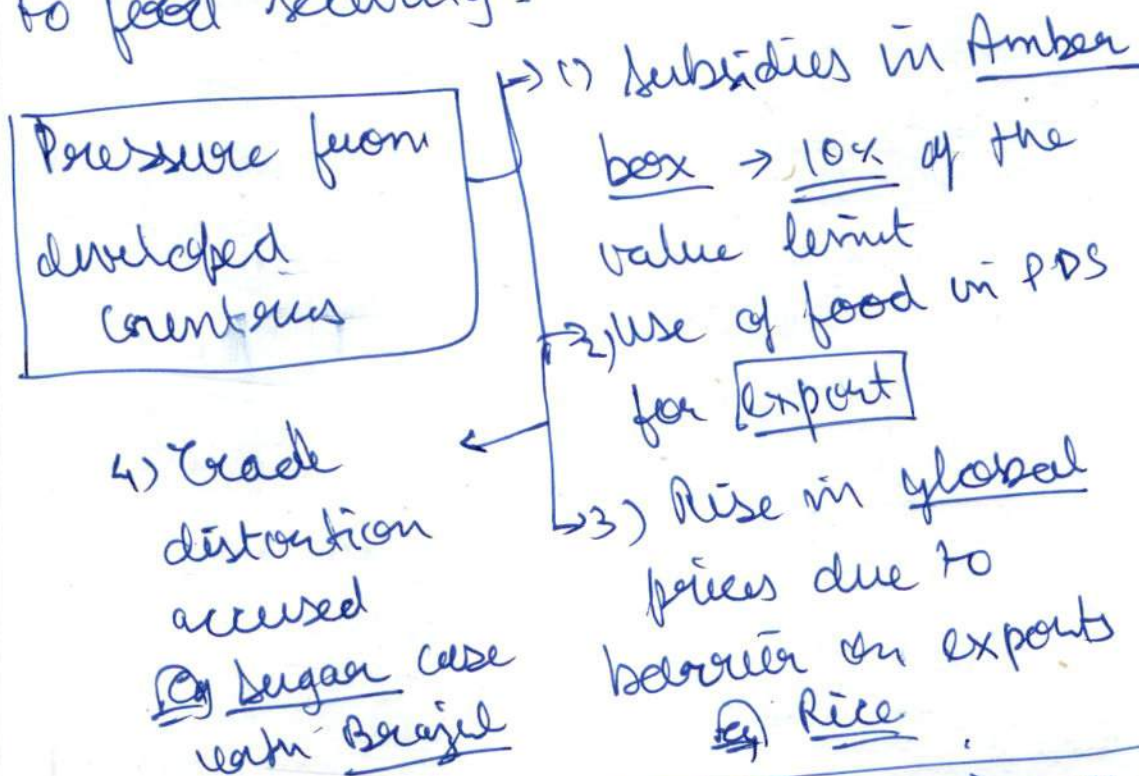 to food security.
Pressure from
developed
countries
1) Subsidies in Amber
box → 10% of the
value limit
2) Use of food in PDS
for export
3) Rise in global
prices due to
barrier on exports
eg Rice
4) Trade
distortion
accused
Eg Sugar case
with Brazil